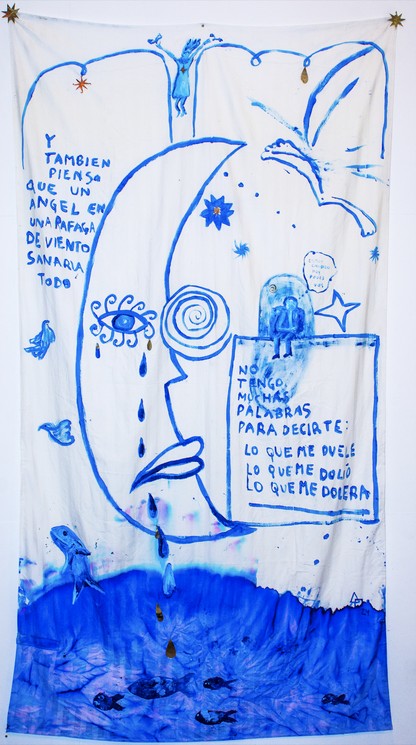 Y
TAMBIEN
PIENSO
QUE UN
ANGEL EN
UNA RAFAGA
DE VIENTO
SANARIA
TODO
NO
TENGO
MUCHAS
PALABRAS
PARA DECIRTE:
LO QUE ME DUELE
LO QUE ME DOLIÓ
LO QUE ME DOLERA